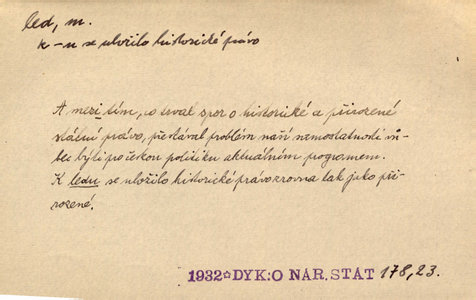 led, m.
k -u se uložilo historické právo
A mezitím, co trval spor o historické a přirozené
státní právo, přestával problém naší samostatnosti vů-
bec býti pro českou politiku aktuálním programem.
K ledu se uložilo historické právo zrovna tak jako při-
rozené.
1932 DYK: O NÁR. STÁT 178,23.